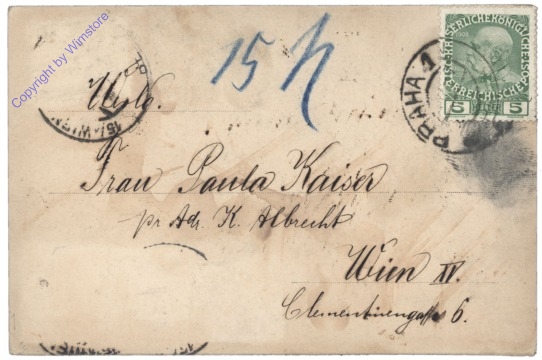 Copyright by Wimstore
15 h
KAISERLICHEKÖNIGLICHE
ÖSTERREICHISCHE POST
1908
5 HELLER 5
PRAHA 1
15/1 WIEN
Wohlg.
Frau Paula Kaiser
pr Adr. K. Albrecht
Wien XV.
Clementinengasse 6.